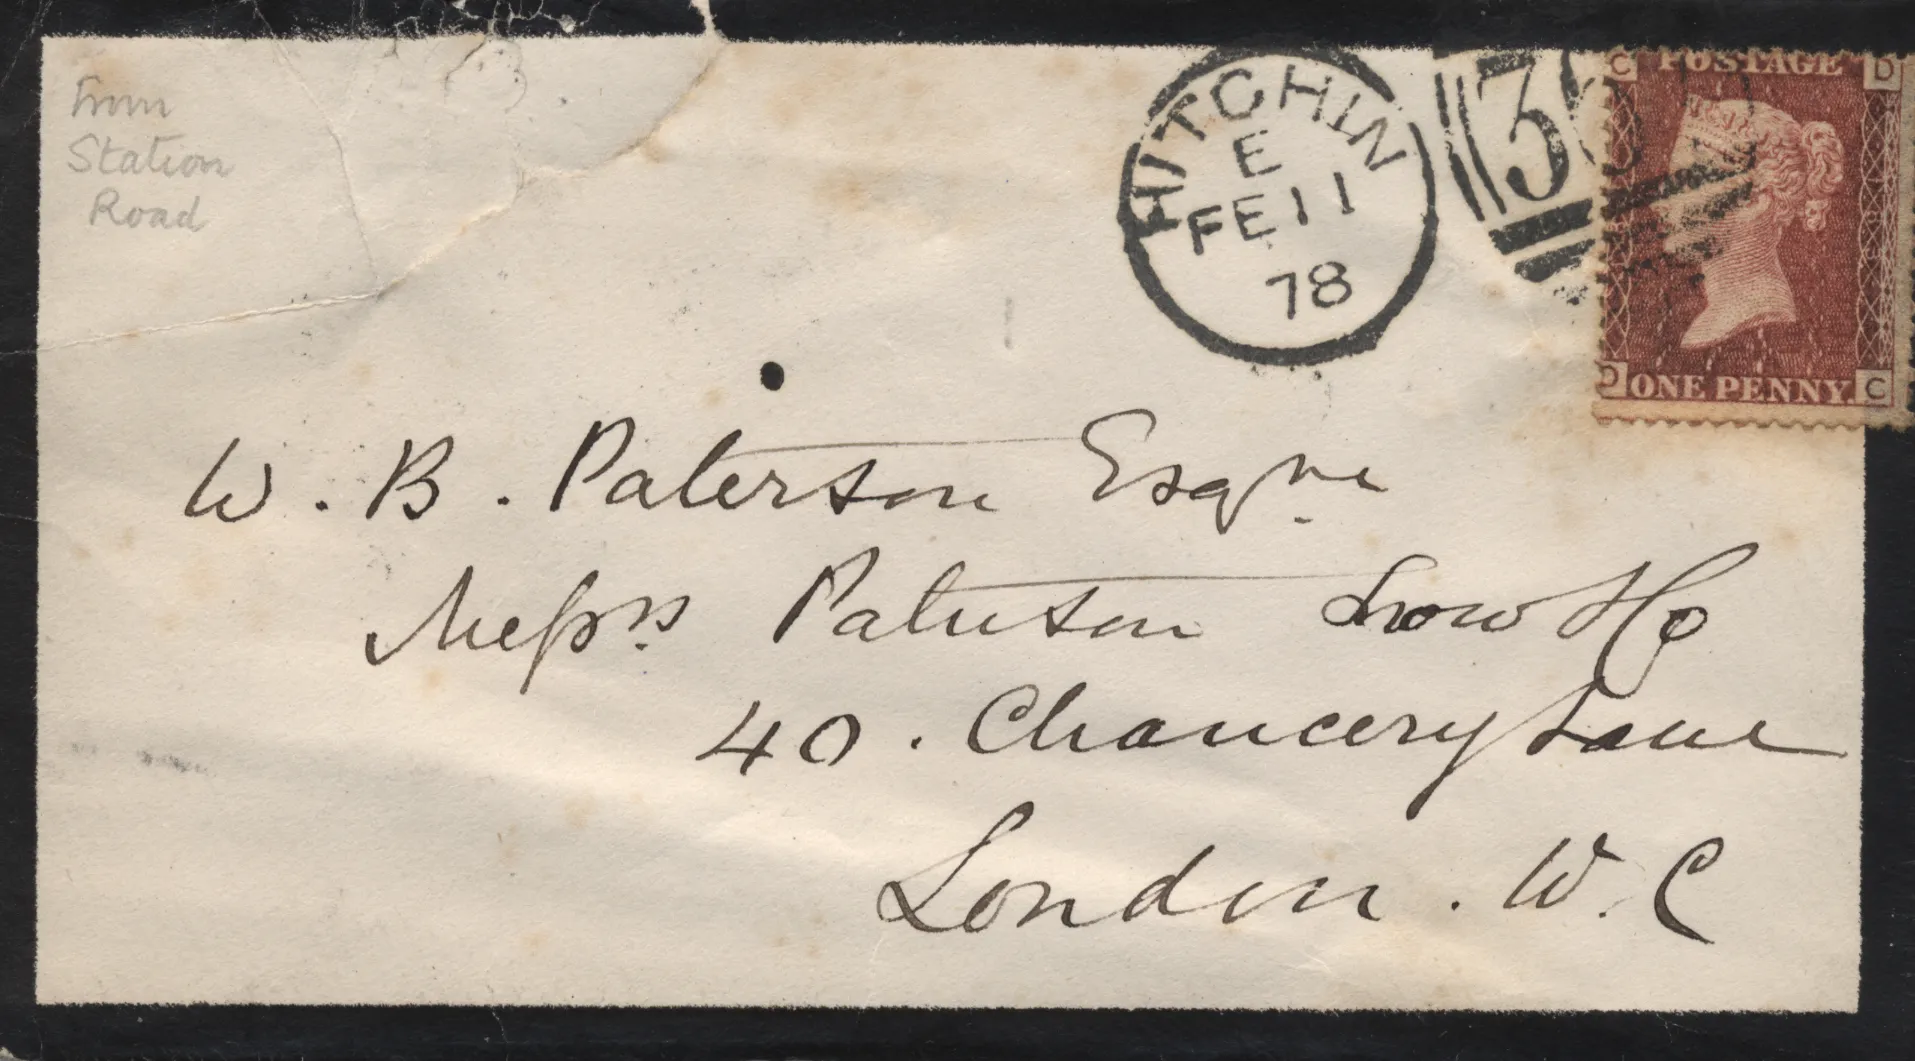 from
Station
Road
HITCHIN
E
FE 11
78
36
C POSTAGE D
D ONE PENNY. C
W. B. Paterson Esqre
Messrs Paterson Snow & Co
40. Chancery Lane
London. W.C